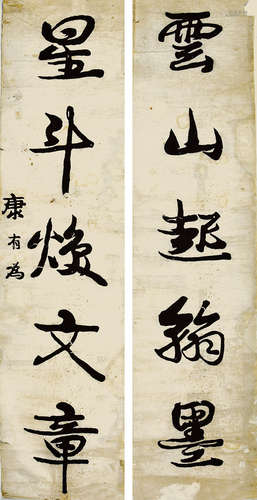 雲山起翰墨
星斗焕文章
康有為